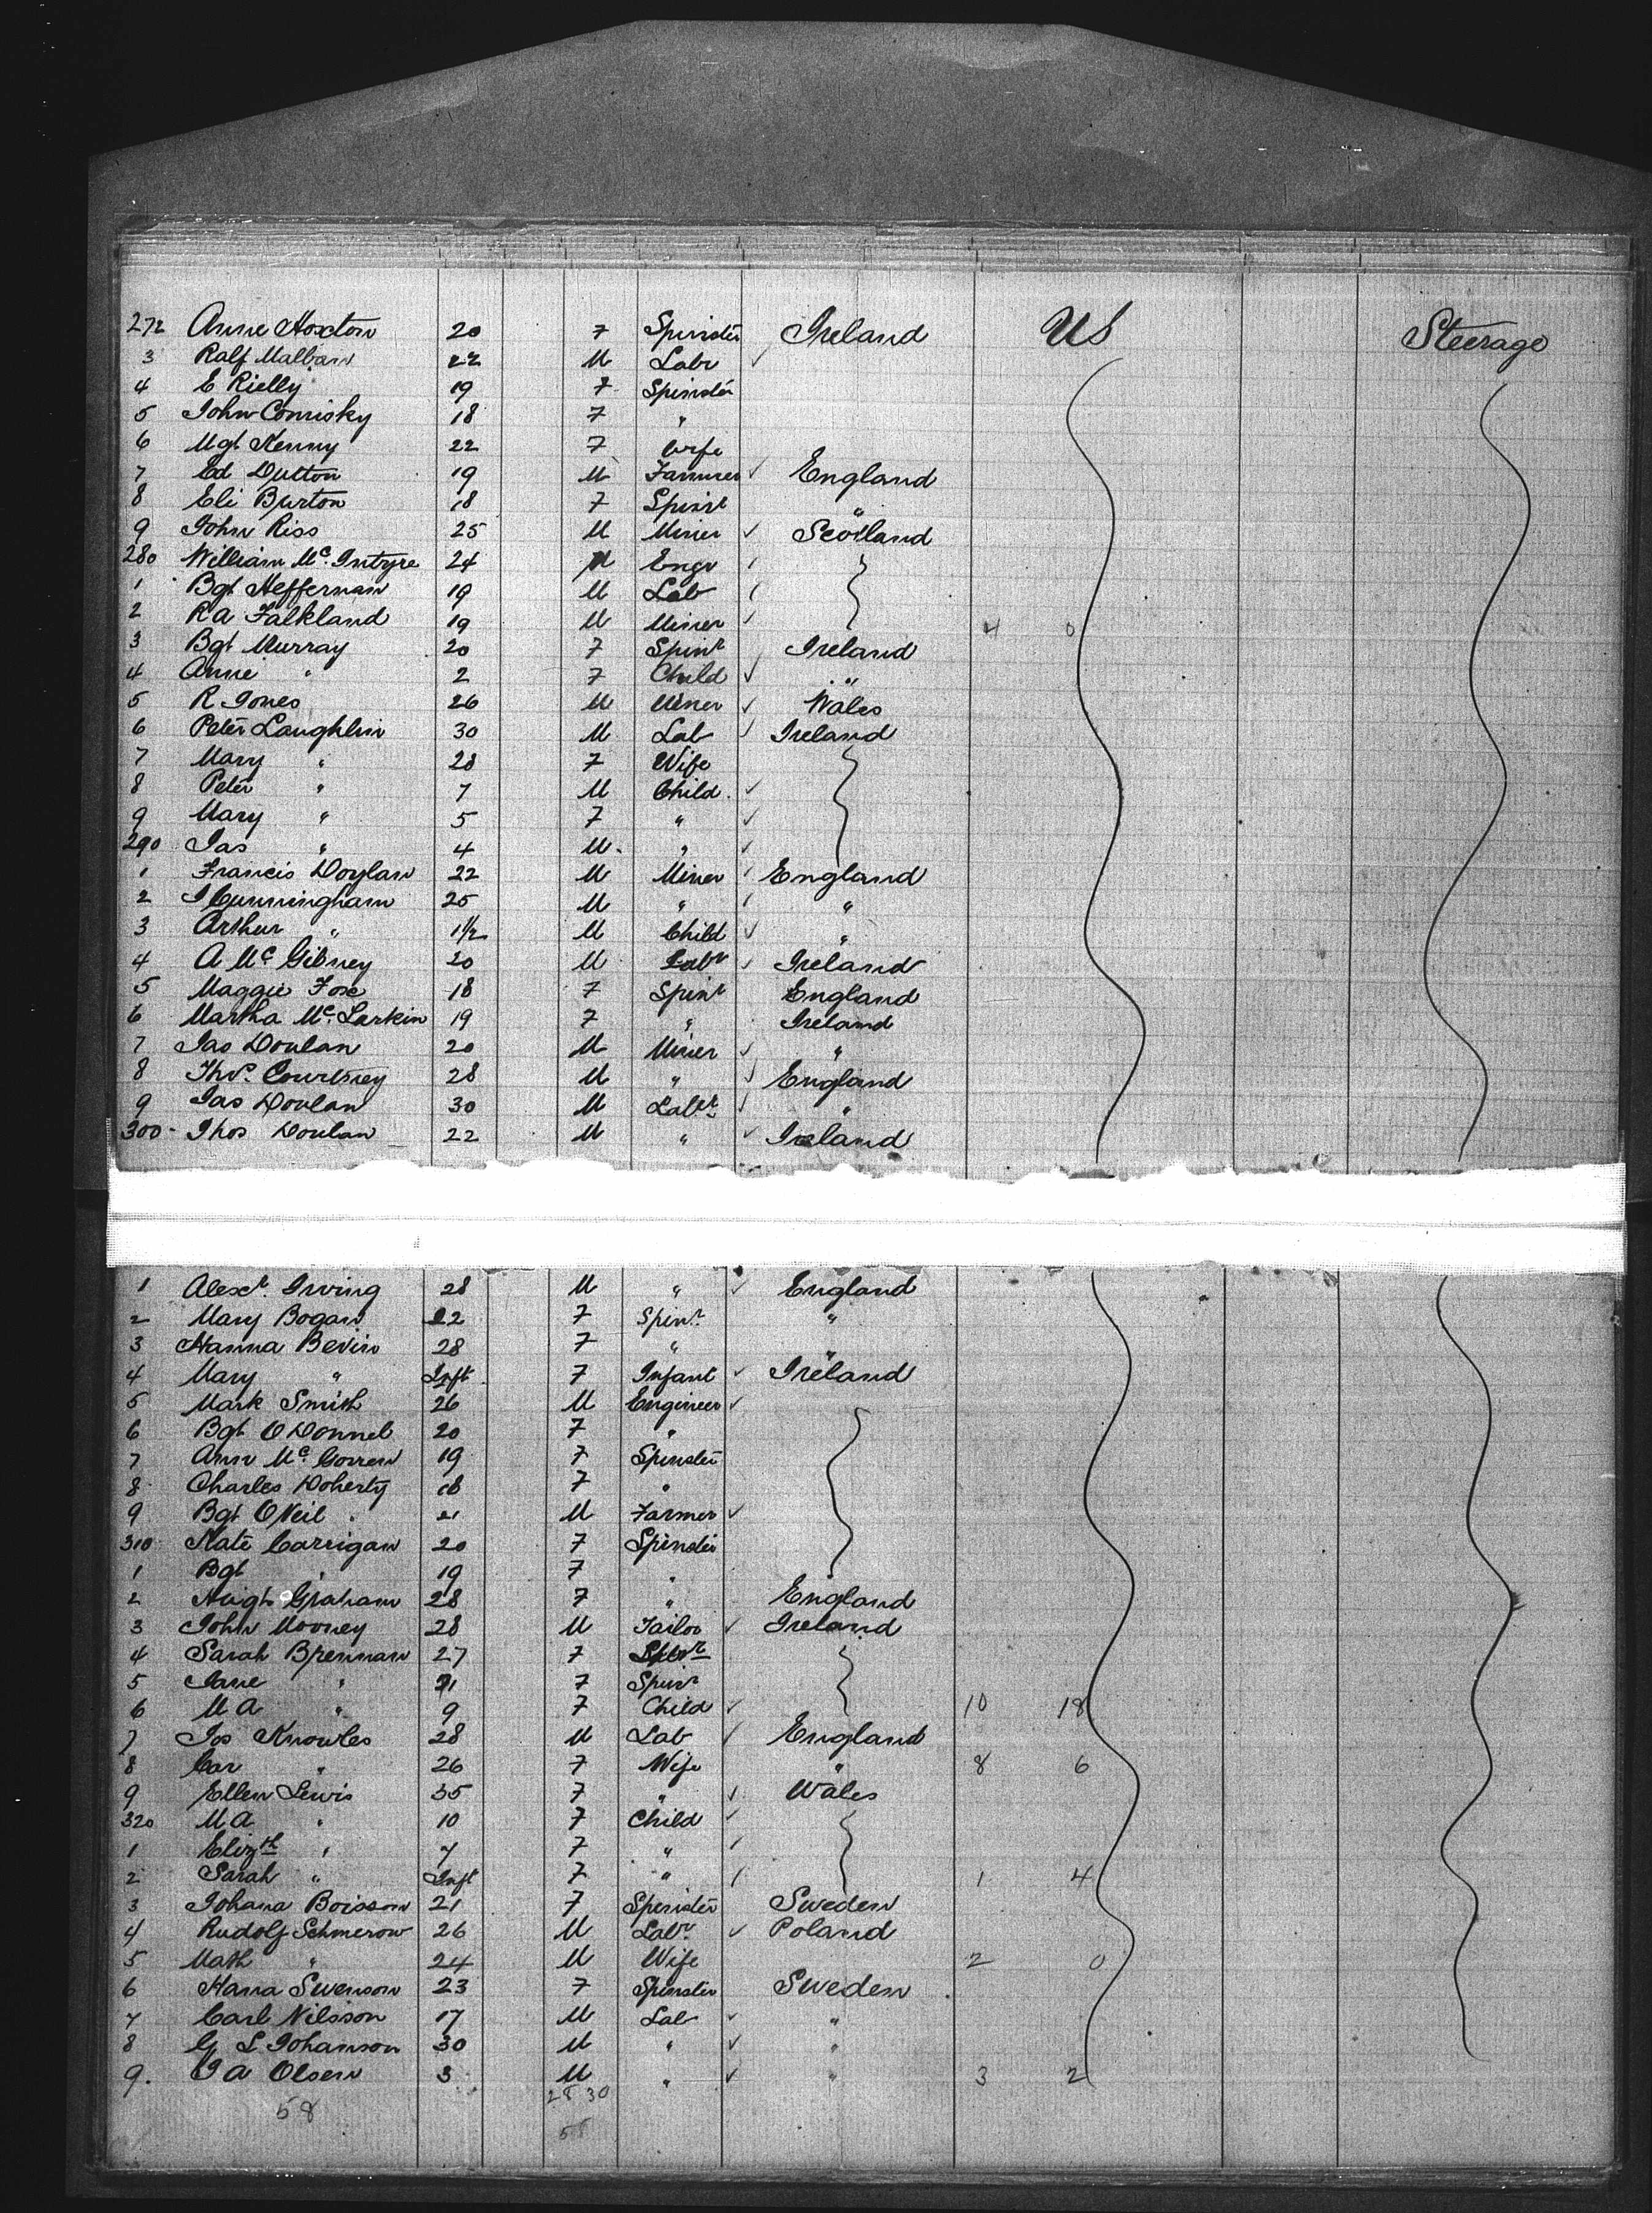 272 Anne Hoxton 20 F Spinster Ireland US Steerage
3 Ralf Malban 22 M Labr
4 E Rielly 19 F Spinster
5 John Comisky 18 F "
6 Mgt Kenny 22 F Wife
7 Ed Dutton 19 M Farmer England
8 Eli Burton 18 F Spinst "
9 John Riss 25 M Miner Scotland
280 William McIntyre 24 M Engr
1 Bgt Heffernan 19 M Lab
2 R A Falkland 19 M Miner 4 0
3 Bgt Murray 20 F Spinr Ireland
4 Anne " 2 F Child "
5 R Jones 26 M Miner Wales
6 Peter Laughlin 30 M Lab Ireland
7 Mary " 28 F Wife
8 Peter " 7 M Child
9 Mary " 5 F "
290 Jas " 4 M "
1 Francis Doylan 22 M Miner England
2 J Cunningham 25 M " "
3 Arthur " 1½ M Child "
4 A McGibney 20 M Labr Ireland
5 Maggie Fox 18 F Spinr England
6 Martha McLarkin 19 F " Ireland
7 Jas Doulan 20 M Miner "
8 Thos. Courtney 28 M " England
9 Jas Doulan 30 M Labr "
300 Thos Doulan 22 M " Ireland
1 Alexr. Irving 28 M " England
2 Mary Bogan 22 F Spinr "
3 Hanna Bevin 28 F " "
4 Mary " Inft F Infant Ireland
5 Mark Smith 26 M Engineer
6 Bgt O Donnel 20 F "
7 Ann McGorren 19 F Spinster
8 Charles Doherty 18 F "
9 Bgt O Neil 21 M Farmer
310 Kate Carrigan 20 F Spinster
1 Bgt " 19 F "
2 Hugh Graham 28 F " England
3 John Mooney 28 M Tailor Ireland
4 Sarah Brennan 27 F Spinr
5 Jane " 21 F Spinr
6 M A " 9 F Child 10 18
7 Jos Knowles 28 M Lab England
8 Car " 26 F Wife " 8 6
9 Ellen Lewis 35 F " Wales
320 M A " 10 F Child
1 Elizth " 7 F "
2 Sarah " Inft F " 1 4
3 Johana Boisson 21 F Spinster Sweden
4 Rudolf Schmerow 26 M Labr. Poland
5 Math " 24 M Wife 2 0
6 Hana Swenson 23 F Spinster Sweden
7 Carl Nilsson 17 M Lab "
8 G L Johanson 30 M " "
9. J A Olsen 3 M " " 3 2
58 28 30
58